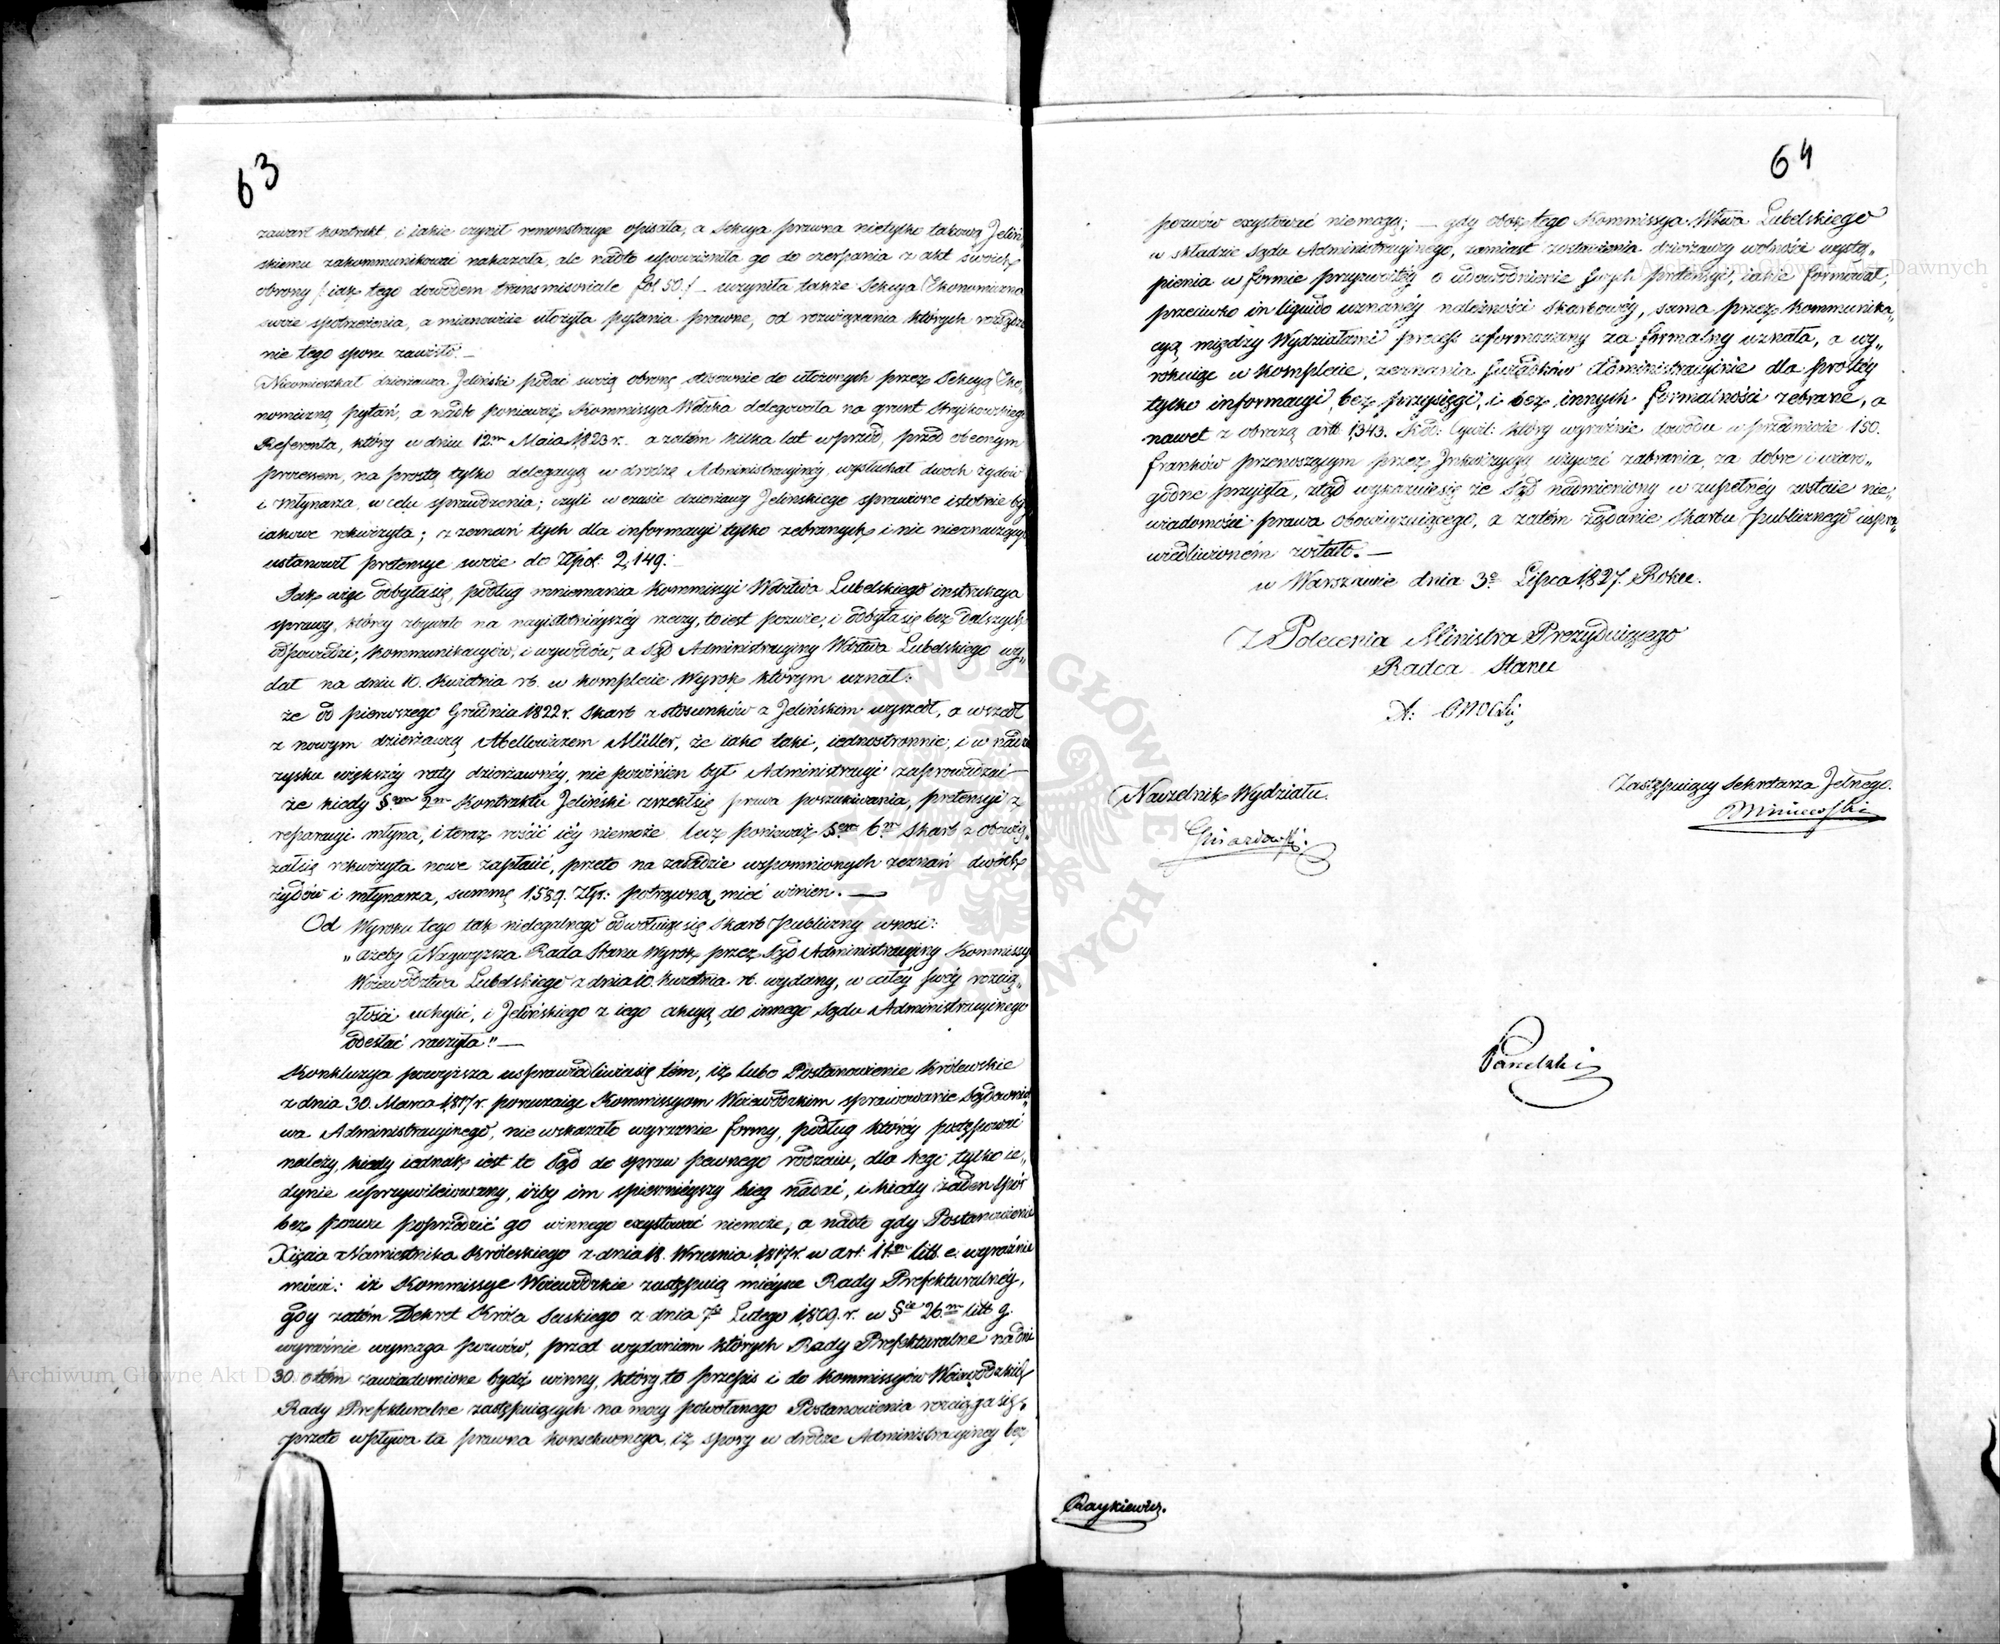 63
zawarł kontrakt, i iakie czynił remonstracye opisała, a Sekcya prawna nietylko takową Jeliń,,
skiemu zakommunikować nakazała, ale nadto upoważniła go do czerpania z akt swoich
obrony /: iak tego dowodem transmissoriale fol 50 :/ — uczyniła także Sekcya Ekonomiczna
swoie spostrzeżenia, a mianowicie ułożyła pytania prawne, od rozwiązania których
nie tego sporu zawisło. —
Nieomieszkał dzierżawca Jeliński podać swoią obronę stosownie do ułożonych przez Sekcyą Eko,,
nomiczną pytań, a nadto ponieważ Kommissya Wdzka delegowała na grunt
Referenta, który w dniu 12m Maia 1823 r. a zatém kilka lat wprzód, przed obecnym
procesem, na prostą tylko delegacyą w drodze Administracyinéy, wysłuchał dwóch żydów
i młynarza, w celu sprawdzenia; czyli w czasie dzierżawy Jelińskiego sprawione istotnie były
iakowe rekwizyta; z zeznań tych dla informacyi tylko zebranych i nic nieznaczących
ustanowił pretensye swoie do Złpol. 2,149.
Tak więc odbyła się, podług mniemania Kommissyi Wdztwa Lubelskiego instrukcya
sprawy, któréy zbywało na nayistotnieyszéy rzeczy, to iest pozwie, i odbyła się bez dalszych
odpowiedzi, kommunikacyów, i wywodów, a Sąd Administracyiny Wdztwa Lubelskiego wy,,
dał na dniu 10. Kwietnia rb. w komplecie Wyrok którym uznał:
że od pierwszego Grudnia 1822 r. Skarb z stosunków z Jelińskim wyszedł, a wszedł
z nowym dzierżawcą Abellowiczem Müller, że iako taki, iednostronnie, i w
zysku większéy raty dzierżawnéy, nie powinien był Administracyi zaprowadzać —
że kiedy §em 2m Kontraktu Jeliński zrzekł się prawa poszukiwania, pretensyi z
reparacyi młyna, i teraz rościć iéy niemoże, lecz ponieważ §em 6m Skarb z obowią,,
zał się rekwizyta nowe zapłacić, przeto na zasadzie wspomnionych zeznań dwóch
żydów i młynarza, summę 1589. Złp: potrąconą mieć winien. —
Od Wyroku tego tak nielegalnego odwołuiąc się Skarb Publiczny wnosi:
„ażeby Naywyższa Rada Stanu Wyrok przez Sąd Administracyiny Kommissyi
Woiewództwa Lubelskiego z dnia 10. Kwietnia rb. wydany, w całéy swéy rozcią,,
głości uchylić, i Jelińskiego z iego akcyą do innego Sądu Administracyinego
odesłać raczyła." —
Konkluzya powyższa usprawiedliwia się tém, iż lubo Postanowienie Królewskie
z dnia 30. Marca 1817 r. poruczaiąc Kommissyom Woiewódzkim sprawowanie Sądownic,,
wa Administracyinego, nie wskazało wyraźnie formy, podług któréy postępować
należy, kiedy iednak iest to Sąd do spraw pewnego rodzaiu, dla tego tylko ie,,
dynie uprzywileiowany, iżby im spieszniéyszy bieg nadać, i kiedy żaden spór
bez pozwu poprzedzić go winnego exystować niemoże, a nadto gdy Postanowienie
Xięcia Namiestnika Królewskiego z dnia 18. Września 1817 r. w art: 11m litt. e. wyraźnie
mówi: iż Kommissye Woiewódzkie zastępuią mieysce Rady Prefekturalnéy,
gdy zatém Dekret Króla Saskiego z dnia 7go Lutego 1809. r. w §ie 26m litt g.
wyraźnie wymaga pozwów, przed wydaniem których Rady Prefekturalne na dni
30. o tém zawiadomione bydź winny, który to przepis i do Kommissyów Woiewódzkich
Rady Prefekturalne zastępuiących na mocy powołanego Postanowienia rozciąga się,
przeto wpływa ta prawna konsekwencya, iż spory w drodze Administracyiney bez
64
pozwów exystować niemogą; — gdy obok tego Kommissya Wdztwa Lubelskiego
w składzie Sądu Administracyinego, zamiast zostawienia dzierżawcy wolności wystą,,
pienia w formie przyzwoitéy o udowodnienie swych pretensyi, iakie formował,
przeciwko in liquido uznanéy należności Skarbowéy, sama przez kommunika,,
cyą między Wydziałami proces uformowany za formalny uznała, a wy,,
rokuiąc w komplecie, zeznania świadków Administracyinie dla prostéy
tylko informacyi, bez przysięgi, i bez innych formalności zebrane, a
nawet z obrazą artt 1,343. Kod: Cywil: który wyraźnie dowodu w przedmiocie 150.
franków przenoszącym przez Inkwizycyą używać zabrania, za dobre i wiaro,,
godne przyięła, ztąd wykazuie się że Sąd nadmieniony w zupełnéy zostaie nie,,
wiadomości prawa obowiązuiącego, a zatém żądanie Skarbu Publicznego uspra,,
wiedliwioném zostało. —
w Warszawie dnia 3o Lipca 1,827. Roku.
Z Polecenia Ministra Prezyduiącego
Radca Stanu
Naczelnik Wydziału.
Zastępuiący Sekretarza Jelnego.
Raykiewicz.
Archiwum Główne Akt Dawnych
Archiwum Główne Akt Dawnych